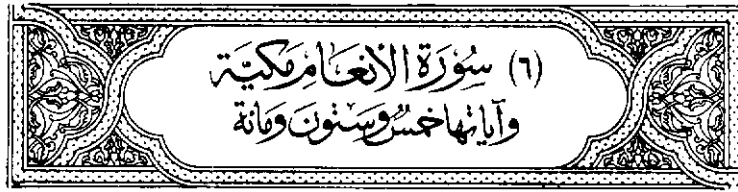 (٦) سُورَة الأنعَامِ مَكيَّة
وآياتها خمسٌ وسِتّون ومائة